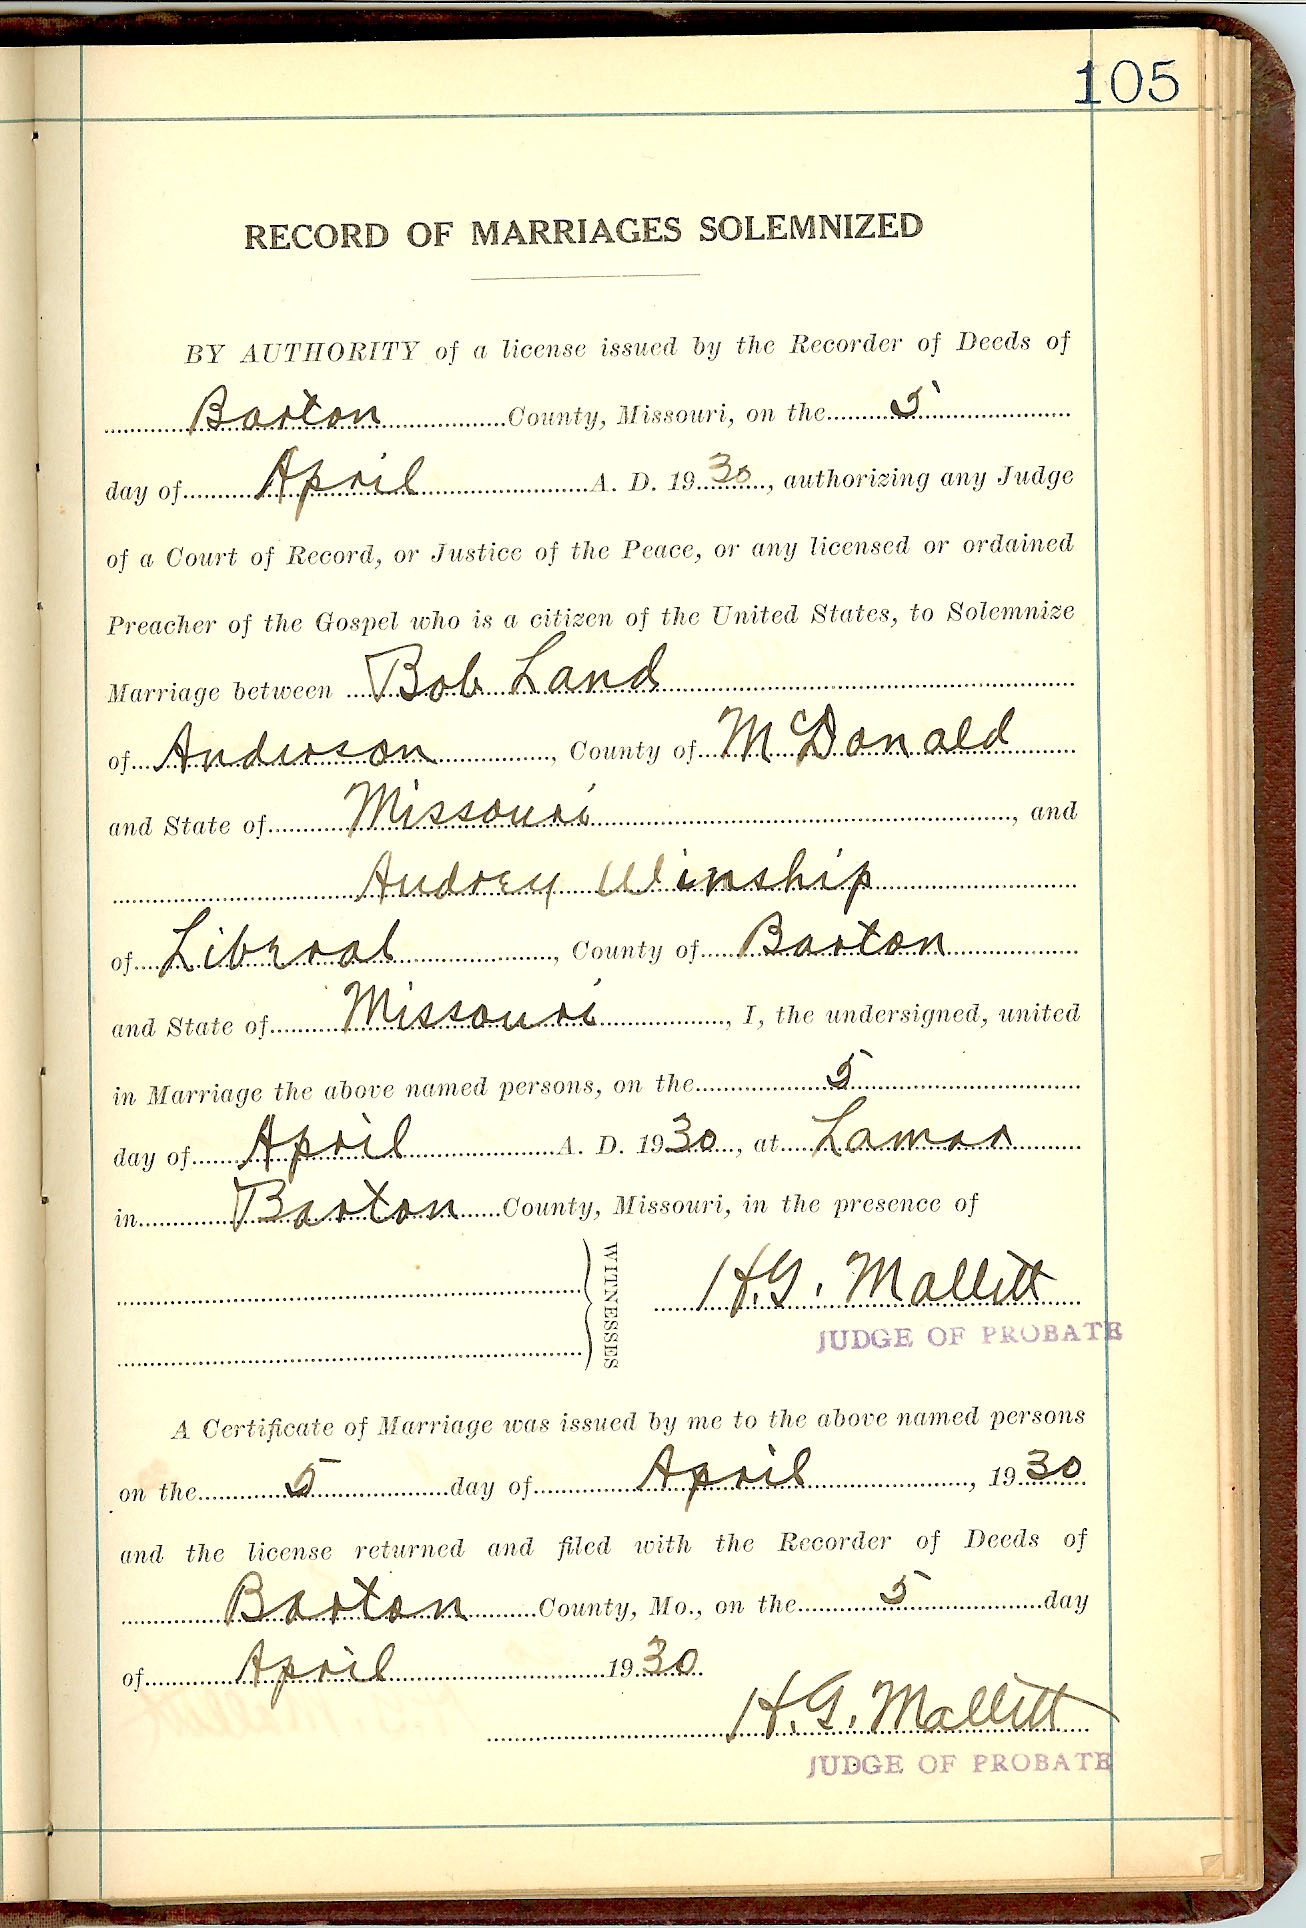 105
RECORD OF MARRIAGES SOLEMNIZED
BY AUTHORITY of a license issued by the Recorder of Deeds of
Barton County, Missouri, on the 5
day of April A. D. 1930, authorizing any Judge
of a Court of Record, or Justice of the Peace, or any licensed or ordained
Preacher of the Gospel who is a citizen of the United States, to Solemnize
Marriage between Bob Land
of Anderson, County of McDonald
and State of Missouri, and
Audrey Winship
of Liberal, County of Barton
and State of Missouri, I, the undersigned, united
in Marriage the above named persons, on the 5
day of April A. D. 1930, at Lamar
in Barton County, Missouri, in the presence of
WITNESSES
H.G. Mallitt
JUDGE OF PROBATE
A Certificate of Marriage was issued by me to the above named persons
on the 5 day of April, 1930
and the license returned and filed with the Recorder of Deeds of
Barton County, Mo., on the 5 day
of April 1930.
H.G. Mallitt
JUDGE OF PROBATE